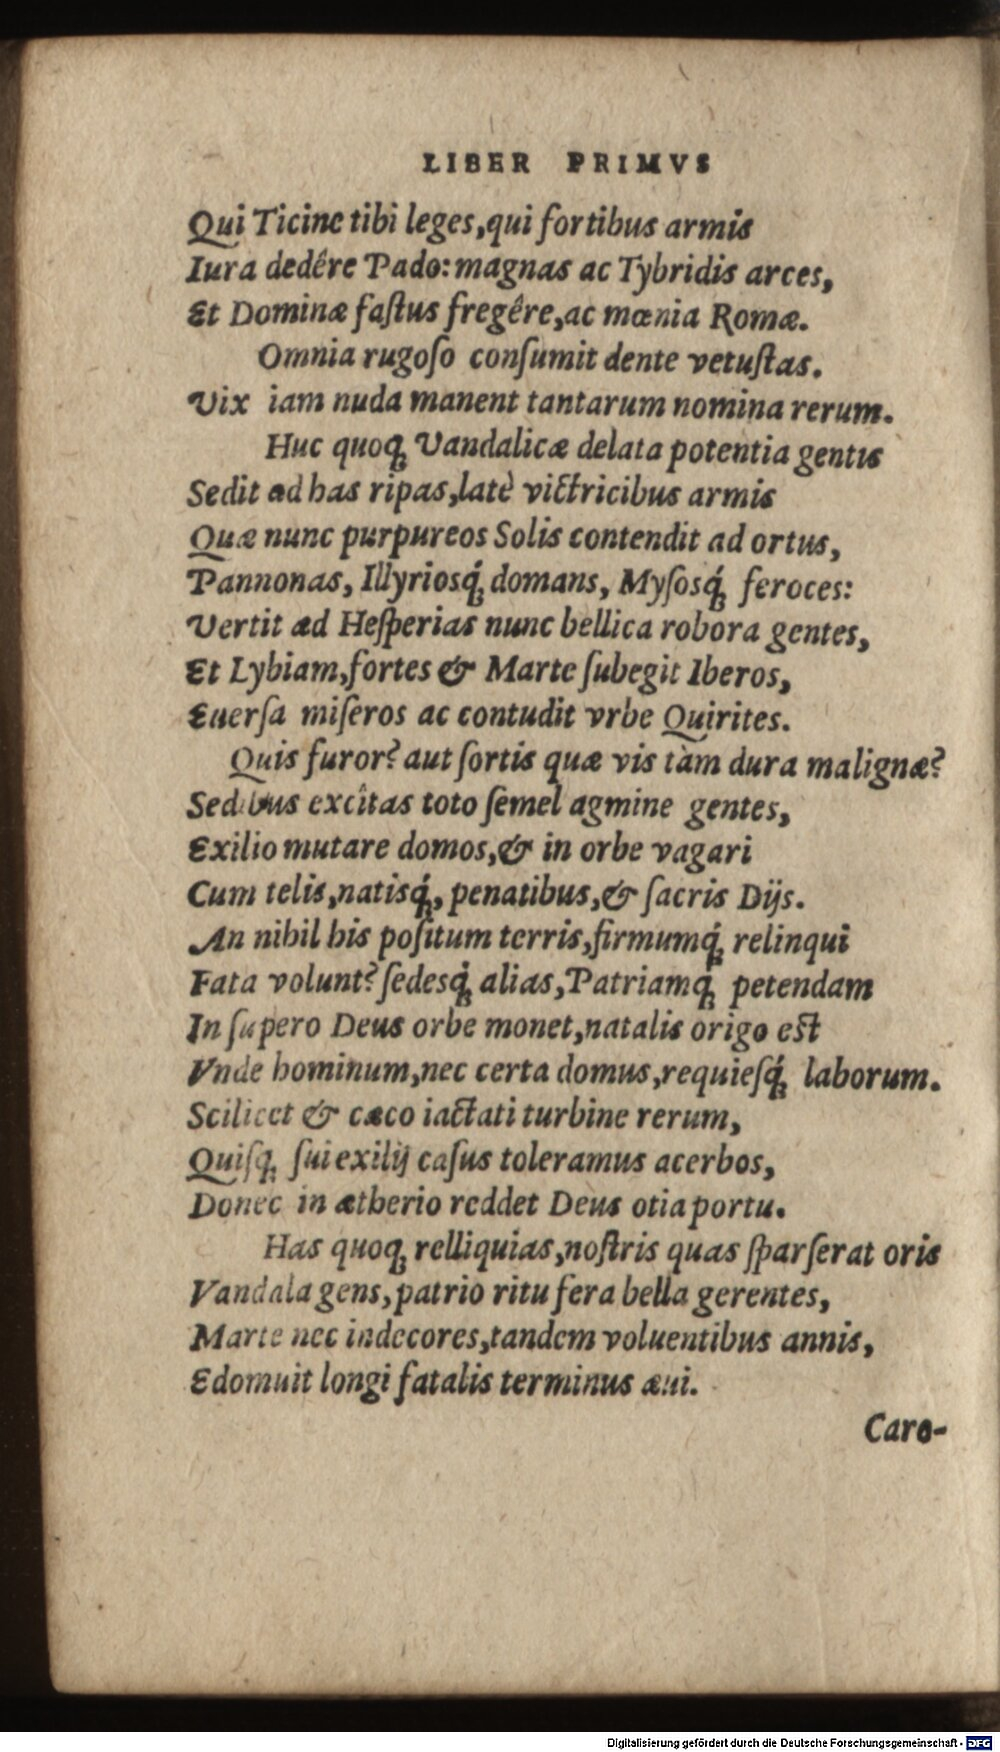 LIBER PRIMVS
Qui Ticine tibi leges,qui fortibus armis
Iura dedêre Pado: magnas ac Tybridis arces,
Et Dominæ faſtus fregêre,ac mœnia Romæ.
Omnia rugoſo conſumit dente vetuſtas.
Vix iam nuda manent tantarum nomina rerum.
Huc quoq; Vandalicæ delata potentia gentis
Sedit ad has ripas,latè victricibus armis
Quæ nunc purpureos Solis contendit ad ortus,
Pannonas, Illyriosq́; domans, Myſosq́; feroces:
Vertit ad Heſperias nunc bellica robora gentes,
Et Lybiam,fortes & Marte ſubegit Iberos,
Euerſa miſeros ac contudit vrbe Quirites.
Quis furor? aut ſortis quæ vis tàm dura malignæ?
Sedibus excîtas toto ſemel agmine gentes,
Exilio mutare domos,& in orbe vagari
Cum telis,natisq́;, penatibus,& ſacris Dijs.
An nihil his poſitum terris,firmumq́; relinqui
Fata volunt? ſedesq́; alias,Patriamq́; petendam
In ſupero Deus orbe monet,natalis origo eſt
Vnde hominum,nec certa domus,requieſq́; laborum.
Scilicet & cæco iactati turbine rerum,
Quiſq; ſui exilij caſus toleramus acerbos,
Donec in ætherio reddet Deus otia portu.
Has quoq; relliquias,noſtris quas ſparſerat oris
Vandala gens,patrio ritu fera bella gerentes,
Marte nec indecores,tandem voluentibus annis,
Edomuit longi fatalis terminus æui.
Caro-
Digitalisierung gefördert durch die Deutsche Forschungsgemeinschaft - DFG